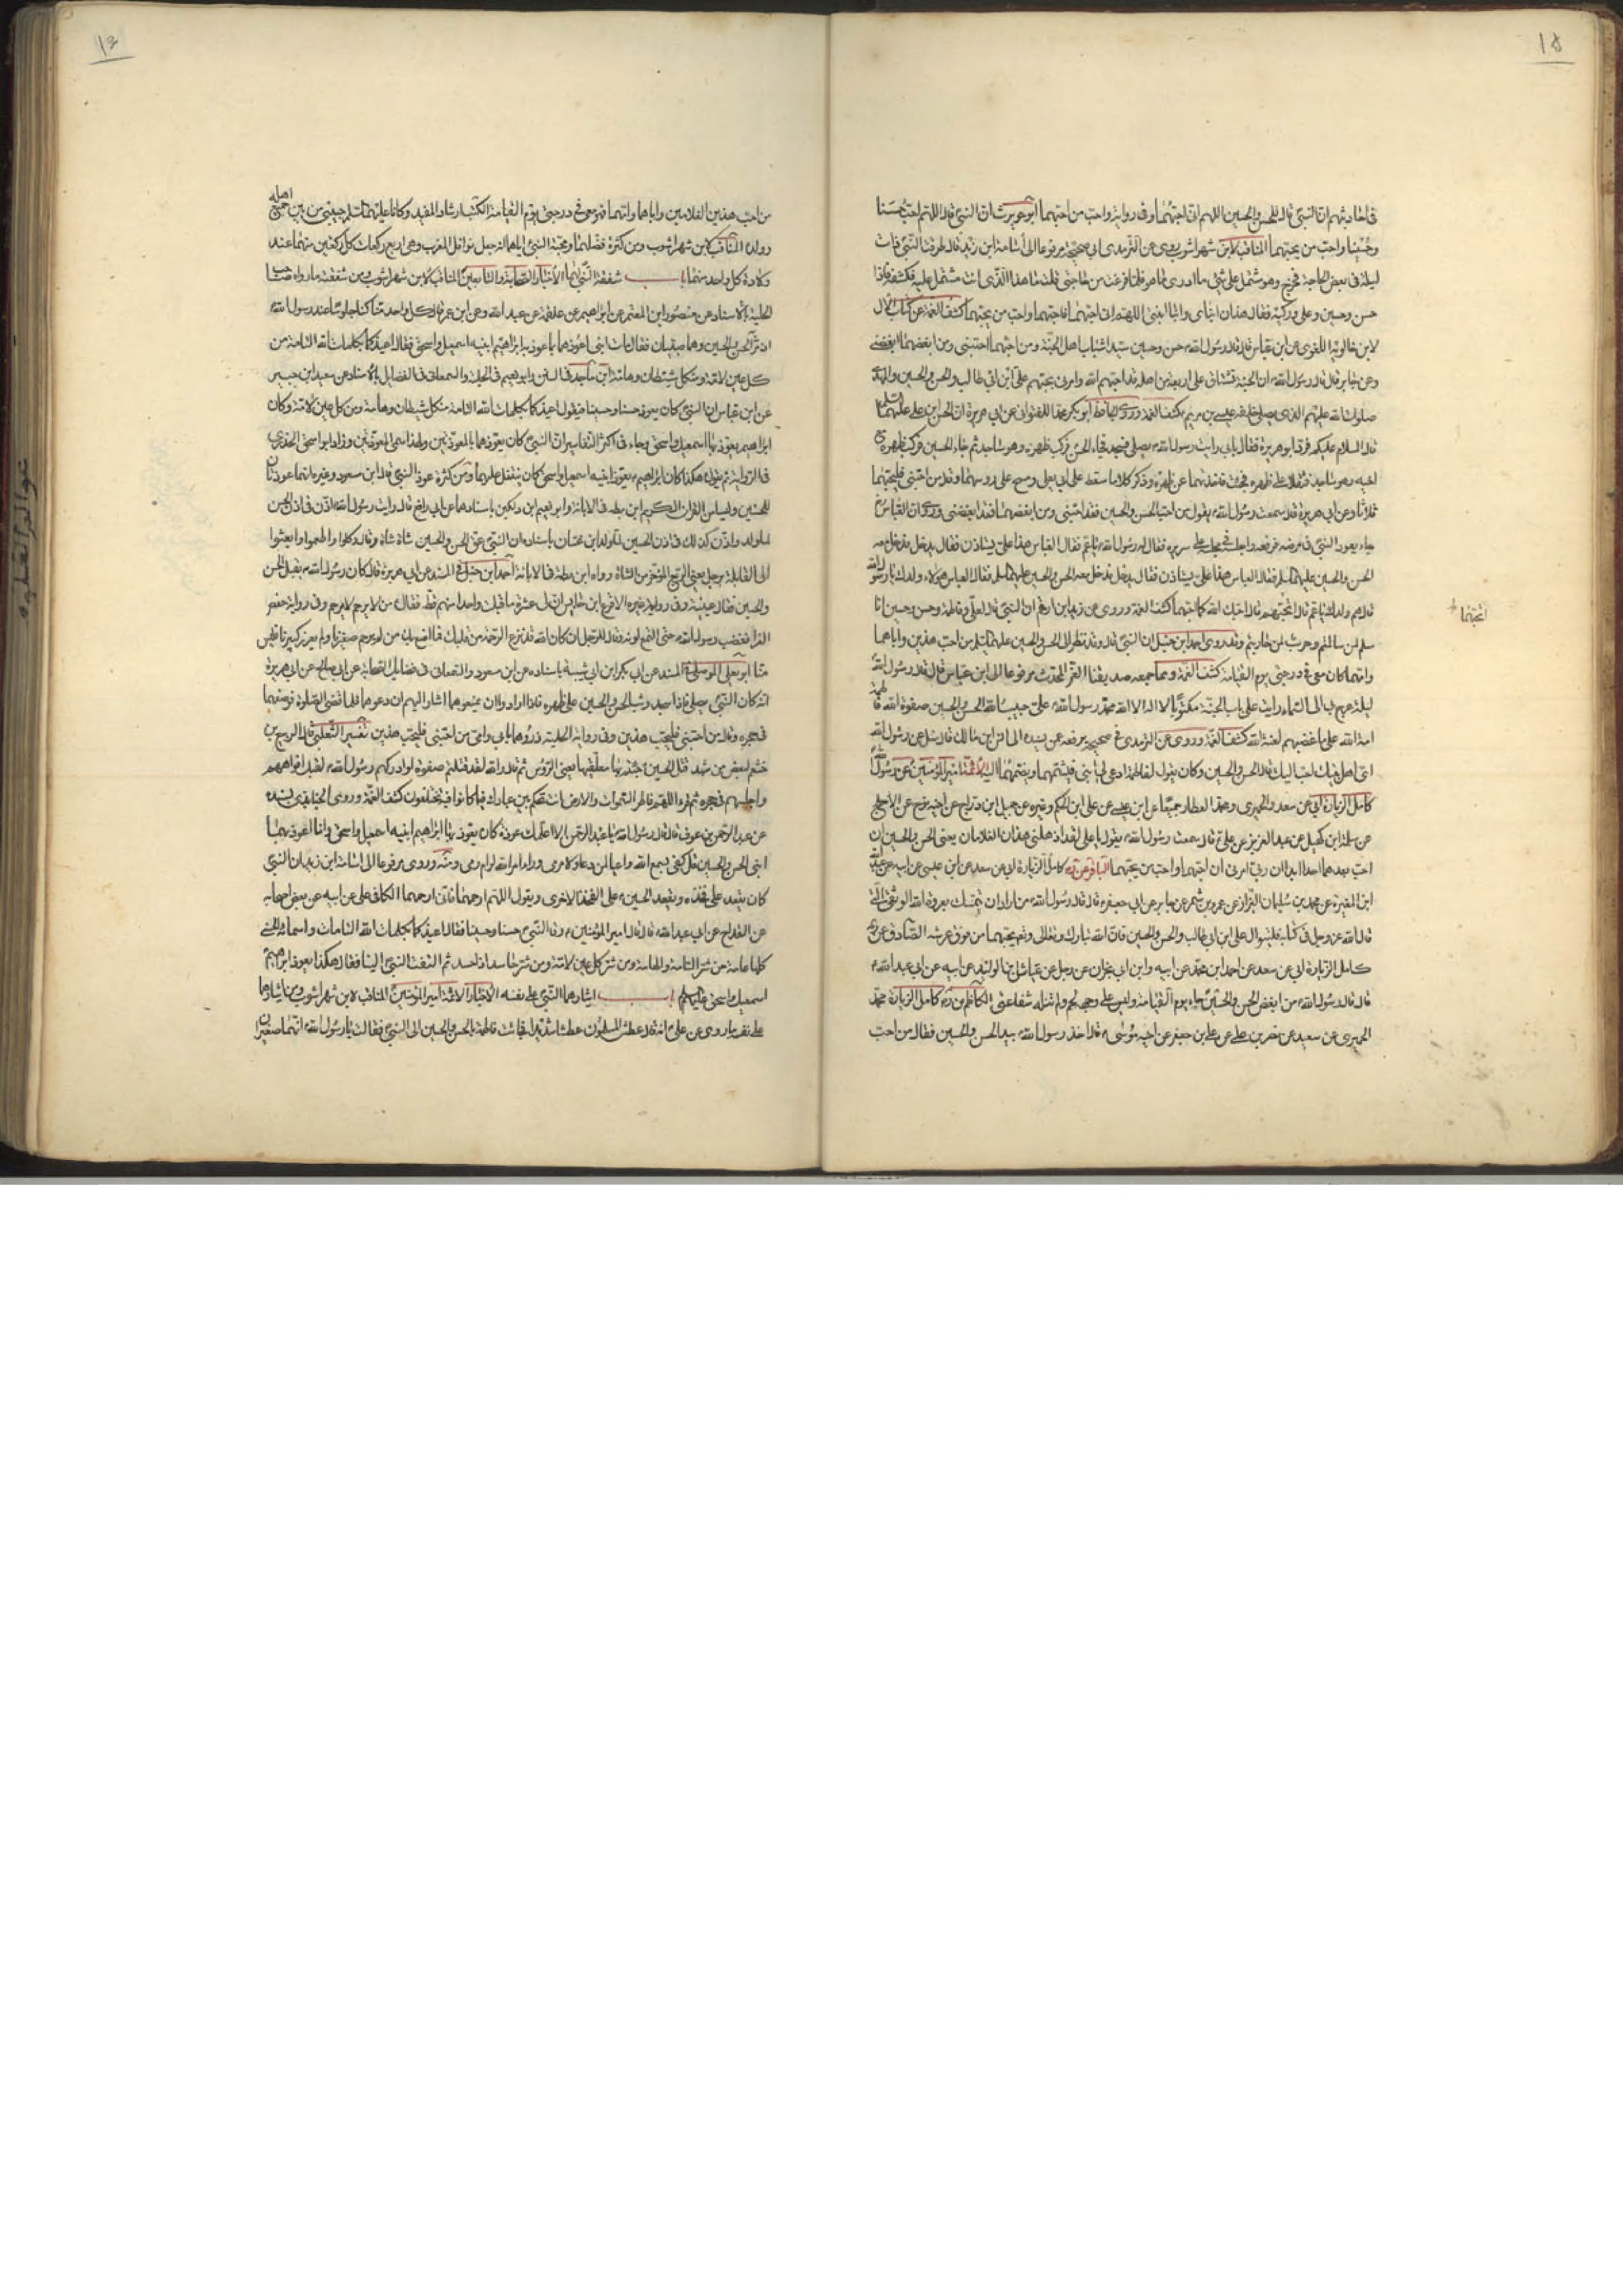 ١٥
في احاديثهم ان النبي قال للحسن والحسين اللهم اني احبهما وفي رواية واحب من احبهما ابو هريرة ان النبي قال اللهم احب حسنا
وحسينا واحب من يحبهما المناقب لابن شهراشوب روى عن الترمذي في صحيحه مرفوعا الى اسامة ابن زيد قال طرقت النبي ذات
ليلة في بعض الحاجة فخرج وهو مشتمل على شيء ما ادرى ما هو فلما فرغت من حاجتي قلت ما هذا الذي انت مشتمل عليه فكشفه فاذا
حسن وحسين وعلى وركيه فقال هذان ابناي وابنا ابنتي اللهم اني احبهما فاحبهما واحب من يحبهما كشف الغمة عن كتاب الآل
لابن خالويه اللغوي عن ابن عباس قال قال رسول الله حسن وحسين سيدا شباب اهل الجنة ومن احبهما احبني ومن ابغضهما ابغضني
وعن جابر قال قال رسول الله ان الجنة تشتاق على اربعة من اهلي قد احبهم الله وامرني بحبهم علي ابن ابي طالب والحسن والحسين والمهدي
صلوات الله عليهم الذي يصلي خلفه عيسى بن مريم كشف الغمة وروى الحافظ ابو بكر محمد اللفتواني عن ابي هريرة ان الحسن ابن علي عليهما
قال السلام عليكم فرد ابو هريرة فقال بابي رايت رسول الله يصلي فسجد فجاء الحسن فركب ظهره وهو ساجد ثم جاء الحسين فركب ظهره مع
اخيه وهو ساجد فثقلا على ظهره فجئت فاخذتهما عن ظهره وذكر كلاما سقط على ابي يعلى ومسح على رؤسهما وقال من احبني فليحبهما
ثلاثا وعن ابي هريرة قال سمعت رسول الله يقول من احب الحسن والحسين فقد احبني ومن ابغضهما فقد ابغضني وروى ان العباس
جاء يعود النبي في مرضه فرفعه واجلسه في مجلسه على سريره فقال له رسول الله يا عم فقال العباس هذا علي يستاذن فقال يدخل فدخل معه
الحسن والحسين عليهما السلم فقال العباس هؤلاء ولدك يا رسول الله
قال هم ولدك يا عم قال اتحبهم قال احبك الله كما احبهما كشف الغمة وروى عن زيد ابن ارقم ان النبي قال لعلي وفاطمة وحسن وحسين انا
سلم لمن سالمتم وحرب لمن حاربتم وقد روى احمد ابن حنبل ان النبي قال وقد نظر الى الحسن والحسين عليهما السلم من احب هذين واباهما
وامهما كان معي في درجتي يوم القيامة كشف الغمة ومما جمعه صديقنا العز المحدث مرفوعا الى ابن عباس قال قال رسول الله
ليلة عرج بي الى السماء رايت على باب الجنة مكتوبا لا اله الا الله محمد رسول الله علي حبيب الله الحسن والحسين صفوة الله فاطمة
امة الله على باغضهم لعنة الله كشف الغمة وروى عن الترمذي في صحيحه يرفعه عن بسنده الى انس ابن مالك قال سئل عن رسول الله
اي اهل بيتك احب اليك قال الحسن والحسين وكان يقول لفاطمة ادعي لي ابني فيشمهما ويضمهما اليه الائمة امير المؤمنين عن رسول الله
كامل الزيارة ابي عن سعد والحميري ومحمد العطار جميعا عن ابن عيسى عن علي ابن الحكم وغيره عن جميل ابن دراج عن اخيه نوح عن الاجلح
عن سلمة ابن كهيل عن عبد العزيز عن علي قال سمعت رسول الله يقول يا علي لقد اذهلني هذان الغلامان يعني الحسن والحسين ان
احب بعدهما احدا ابدا ان ربي امرني ان احبهما واحب من يحبهما الباقر عن كامل الزيارة ابي عن سعد عن ابن عيسى عن ابيه عن عبد الله
ابن المغيرة عن محمد بن سليمان البزاز عن عمرو بن شمر عن جابر عن ابي جعفر قال قال رسول الله من اراد ان يتمسك بعروة الله الوثقى التي
قال الله عز وجل في كتابه فليتوال علي ابن ابي طالب والحسن والحسين فان الله تبارك وتعالى يحبهما من فوق عرشه الصادق عن
كامل الزيارة ابي عن سعد عن احمد ابن محمد عن ابيه وابن ابي نجران عن رجل عن عباس ابن الوليد عن ابيه عن ابي عبد الله
قال قال رسول الله من ابغض الحسن والحسين جاء يوم القيامة وليس على وجهه لحم ولم تنله شفاعتي الكاظم كامل الزيارة محمد
الحميري عن سعيد عن نصر بن علي عن علي بن جعفر عن اخيه موسى قال اخذ رسول الله بيد الحسن والحسين فقال من احب
اتحبهما
من احب هذين الغلامين واباهما وامهما فهو معي في درجتي يوم القيامة الكتب ارشاد المفيد وكانا عليهما السلم حبيبي من بين جميع اهله
وولده المناقب لابن شهراشوب ومن كثرة فضلهما ومحبة النبي اياهما انه جعل نوافل المغرب وهي اربع ركعات كل ركعتين منهما عند
ولادة كل واحد منهما باب شفقة النبي لهما الاخبار الصحابة والتابعين المناقب لابن شهراشوب ومن شفقته ما رواه صاحب
الحلية بالاسناد عن منصور ابن المعتمر عن ابراهيم عن علقمة عن عبد الله وعن ابن عمر قال كل واحد منا كنا جلوسا عند رسول الله
اذ مر الحسن والحسين وهما صبيان فقال هات ابني اعوذهما بما عوذ به ابراهيم ابنيه اسمعيل واسحق فقال اعيذكما بكلمات الله التامة من
كل عين لامة ومن كل شيطان وهامة ابن ماجه في السنن وابو نعيم في الحلية والسمعاني في الفضايل بالاسناد عن سعيد ابن جبير
عن ابن عباس ان النبي كان يعوذ حسنا وحسينا فيقول اعيذكما بكلمات الله التامة من كل شيطان وهامة ومن كل عين لامة وكان
ابراهيم يعوذ بها اسمعيل واسحق وجاء في اكثر التفاسير ان النبي كان يعوذهما بالمعوذتين ولهذا سمى المعوذتين وزاد ابو سعيد الخدري
في الرواية ثم يقول هكذا كان ابراهيم يعوذ ابنيه اسمعيل واسحق كان يتفل عليهما ومن كثرة عوذ النبي قال ابن مسعود وغيره انهما عوذتان
للحسنين وليستا من القران الكريم ابن بطة في الابانة وابو نعيم ابن دكين باسنادهما عن ابي رافع قال رايت رسول الله اذن في اذن الحسن
لما ولد واذن كذلك في اذن الحسين لما ولد ابن غسان باسناده ان النبي عق الحسن والحسين شاة شاة وقال كلوا واطعموا وابعثوا
الى القابلة برجل يعني الربع المؤخر من الشاة رواه ابن بطة في الابانة احمد ابن حنبل في المسند عن ابي هريرة قال كان رسول الله يقبل الحسن
والحسين فقال عيينة وفي رواية غيره الاقرع ابن حابس ان لي عشرة ما قبلت واحدا منهم قط فقال من لا يرحم لا يرحم وفي رواية حفص
الفرا فغضب رسول الله حتى التمع لونه وقال للرجل ان كان الله قد نزع الرحمة من قلبك فما اصنع بك من لم يرحم صغيرنا ولم يعزز كبيرنا فليس
منا ابو يعلى الموصلي في المسند عن ابي بكر ابن ابي شيبة باسناده عن ابن مسعود والسمعاني في فضايل الصحابة عن ابي صالح عن ابي هريرة
انه كان النبي يصلي فاذا سجد وثب الحسن والحسين على ظهره فاذا ارادوا ان يمنعوهما اشار اليهم ان دعوهما فلما قضى الصلوة وضعهما
في حجره وقال من احبني فليحب هذين وفي رواية الحلية ذروهما بابي وامي من احبني فليحب هذين تفسير الثعلبي قال الربيع بن
خثيم لبعض من شهد قتل الحسين جئتم بها معلقيها يعني الرؤس ثم قال والله لقد قتلتم صفوة لو ادركهم رسول الله لقبل افواههم
واجلسهم في حجره ثم قرء اللهم فاطر السموات والارض انت تحكم بين عبادك فيما كانوا فيه يختلفون كشف الغمة وروى الجنابذي بسنده
عن عبد الرحمن بن عوف قال قال رسول الله يا عبد الرحمن الا اعلمك عوذة كان يعوذ بها ابراهيم ابنيه اسمعيل واسحق وانا اعوذ بهما
ابني الحسن والحسين قل كفى بسمع الله واعيا لمن دعا ولا مرمى وراء امر الله لرام رمى ومنه وروى مرفوعا الى اسامة ابن زيد ان النبي
كان يقعد على فخذه ويقعد الحسين على الفخذ الاخرى ويقول اللهم ارحمهما فاني ارحمهما الكافي علي عن ابيه عن بعض اصحابه
عن القداح عن ابي عبد الله قال قال امير المؤمنين رقا النبي حسنا وحسينا فقال اعيذكما بكلمات الله التامات واسمائه الحسنى
كلها عامة من شر السامة والهامة ومن شر كل عين لامة ومن شر حاسد اذا حسد ثم التفت النبي الينا فقال هكذا يعوذ ابراهيم
اسمعيل واسحق عليهم السلم باب ايثارهما النبي على نفسه الاخبار الائمة امير المؤمنين المناقب لابن شهراشوب ومن ايثارهما
على نفسه ما روى عن علي انه قال عطش المسلمون عطشا شديدا فجائت فاطمة بالحسن والحسين الى النبي فقالت يا رسول الله انهما صغيران